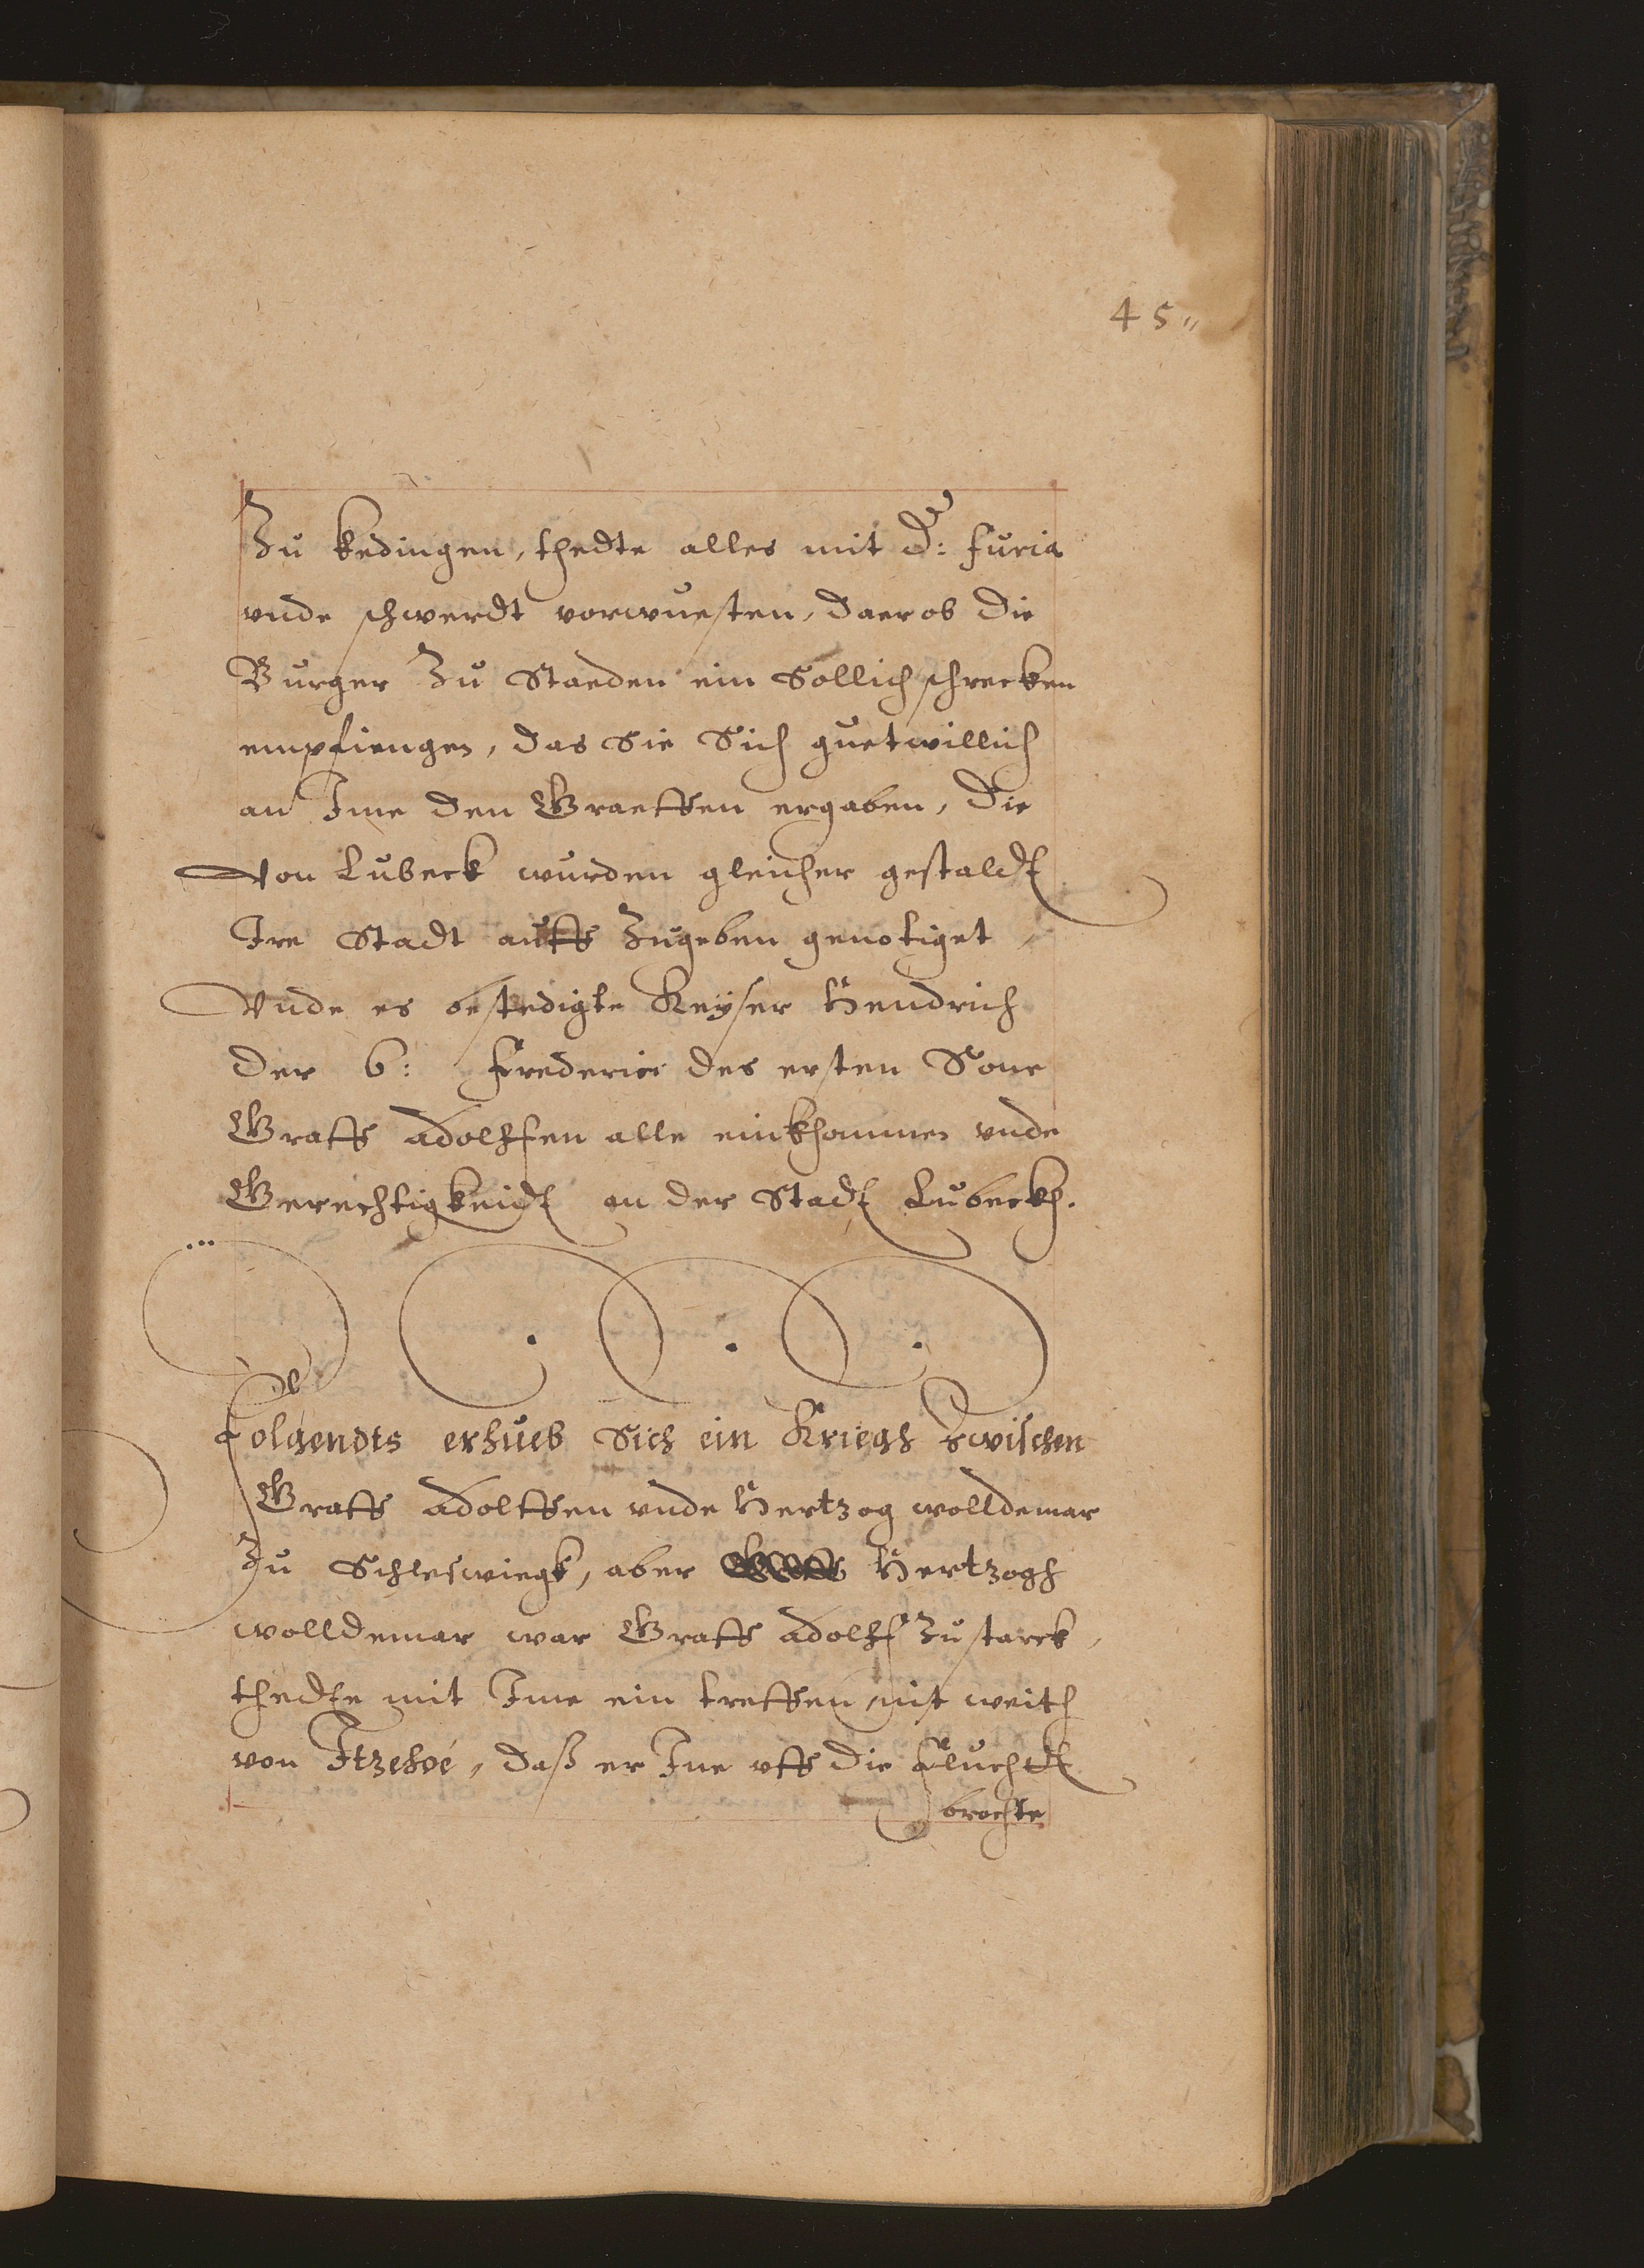 45"
Zu kedingen, thedte alles mit d: furia
vnde schwerdt vorwuesten, daerob die
Burger Zu Staeden ein Sollich schrecken
empfiengen, das Sie Sich guetwillich
an Ime den Graeffen ergaben, Die
Von Lubeck wurden gleicher gestaldt
Ire Stadt auff Zugeben genotiget
Vnde es bestedigte Keyser Hendrich
der 6: Frederici des ersten Sone
Graff adolffen alle einkhommen vnde
Gerechtigkeidt an der Stadt Lubeckh.
Folgendts erhueb Sich ein Kriegh zwischen
Graff adolffen vnde Hertzog wolldemar
Zu Schleswiegk, aber Hertzogh
wolldemar war Graff adolff Zu starck,
thedte mit Ime ein treffen nit weith
von Itzehoe, daß er Ine vff die fluchdt
brochte